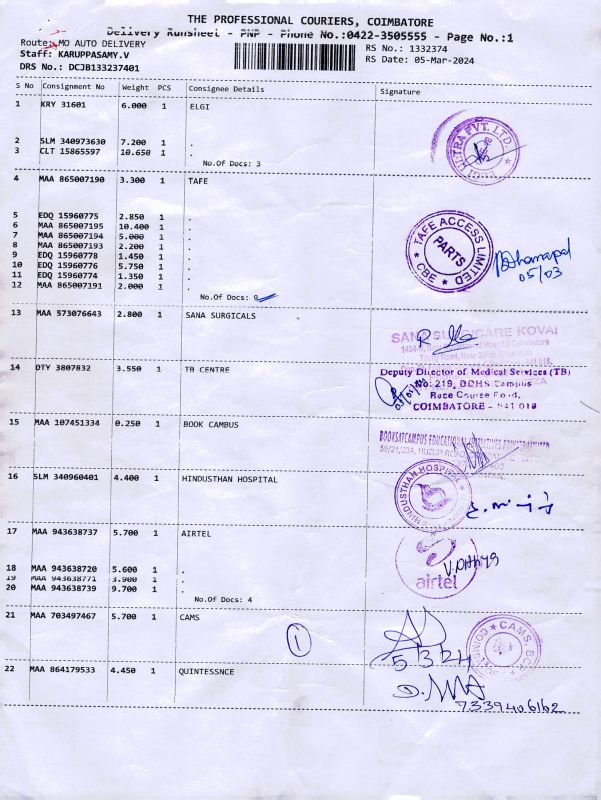 THE PROFESSIONAL COURIERS, COIMBATORE
Delivery Runsheet - PNP - Phone No.:0422-3505555 - Page No.:1
Route: MO AUTO DELIVERY
RS No.: 1332374
Staff: KARUPPASAMY.V
RS Date: 05-Mar-2024
DRS No.: DCJB133237401
S No Consignment No Weight PCS Consignee Details Signature
1 KRY 31601 6.000 1 ELGI
2 SLM 340973630 7.200 1 .
3 CLT 15865597 10.650 1 .
No.Of Docs: 3
ULTRA PVT. LTD.
4 MAA 865007190 3.300 1 TAFE
5 EDQ 15960775 2.850 1 .
6 MAA 865007195 10.400 1 .
7 MAA 865007194 5.000 1 .
8 MAA 865007193 2.200 1 .
9 EDQ 15960778 1.450 1 .
10 EDQ 15960776 5.750 1 .
11 EDQ 15960774 1.350 1 .
12 MAA 865007191 2.000 1 .
No.Of Docs: 9
TAFE ACCESS LIMITED
PARTS
CBE
05/03
13 MAA 573076643 2.800 1 SANA SURGICALS
SANA SURGICARE KOVAI
14 DTY 3807832 3.550 1 TB CENTRE
Deputy Director of Medical Services (TB)
No: 219, DDHS Campus
Race Course Road,
COIMBATORE - 641 018
15 MAA 107451334 0.250 1 BOOK CAMBUS
16 SLM 340960401 4.400 1 HINDUSTHAN HOSPITAL
HINDUSTHAN HOSPITAL
17 MAA 943638737 5.700 1 AIRTEL
18 MAA 943638720 5.600 1 .
19 MAA 943638771 3.900 1 .
20 MAA 943638739 9.700 1 .
No.Of Docs: 4
airtel
21 MAA 703497467 5.700 1 CAMS
1
5 3 24
CAMS
22 MAA 864179533 4.450 1 QUINTESSNCE